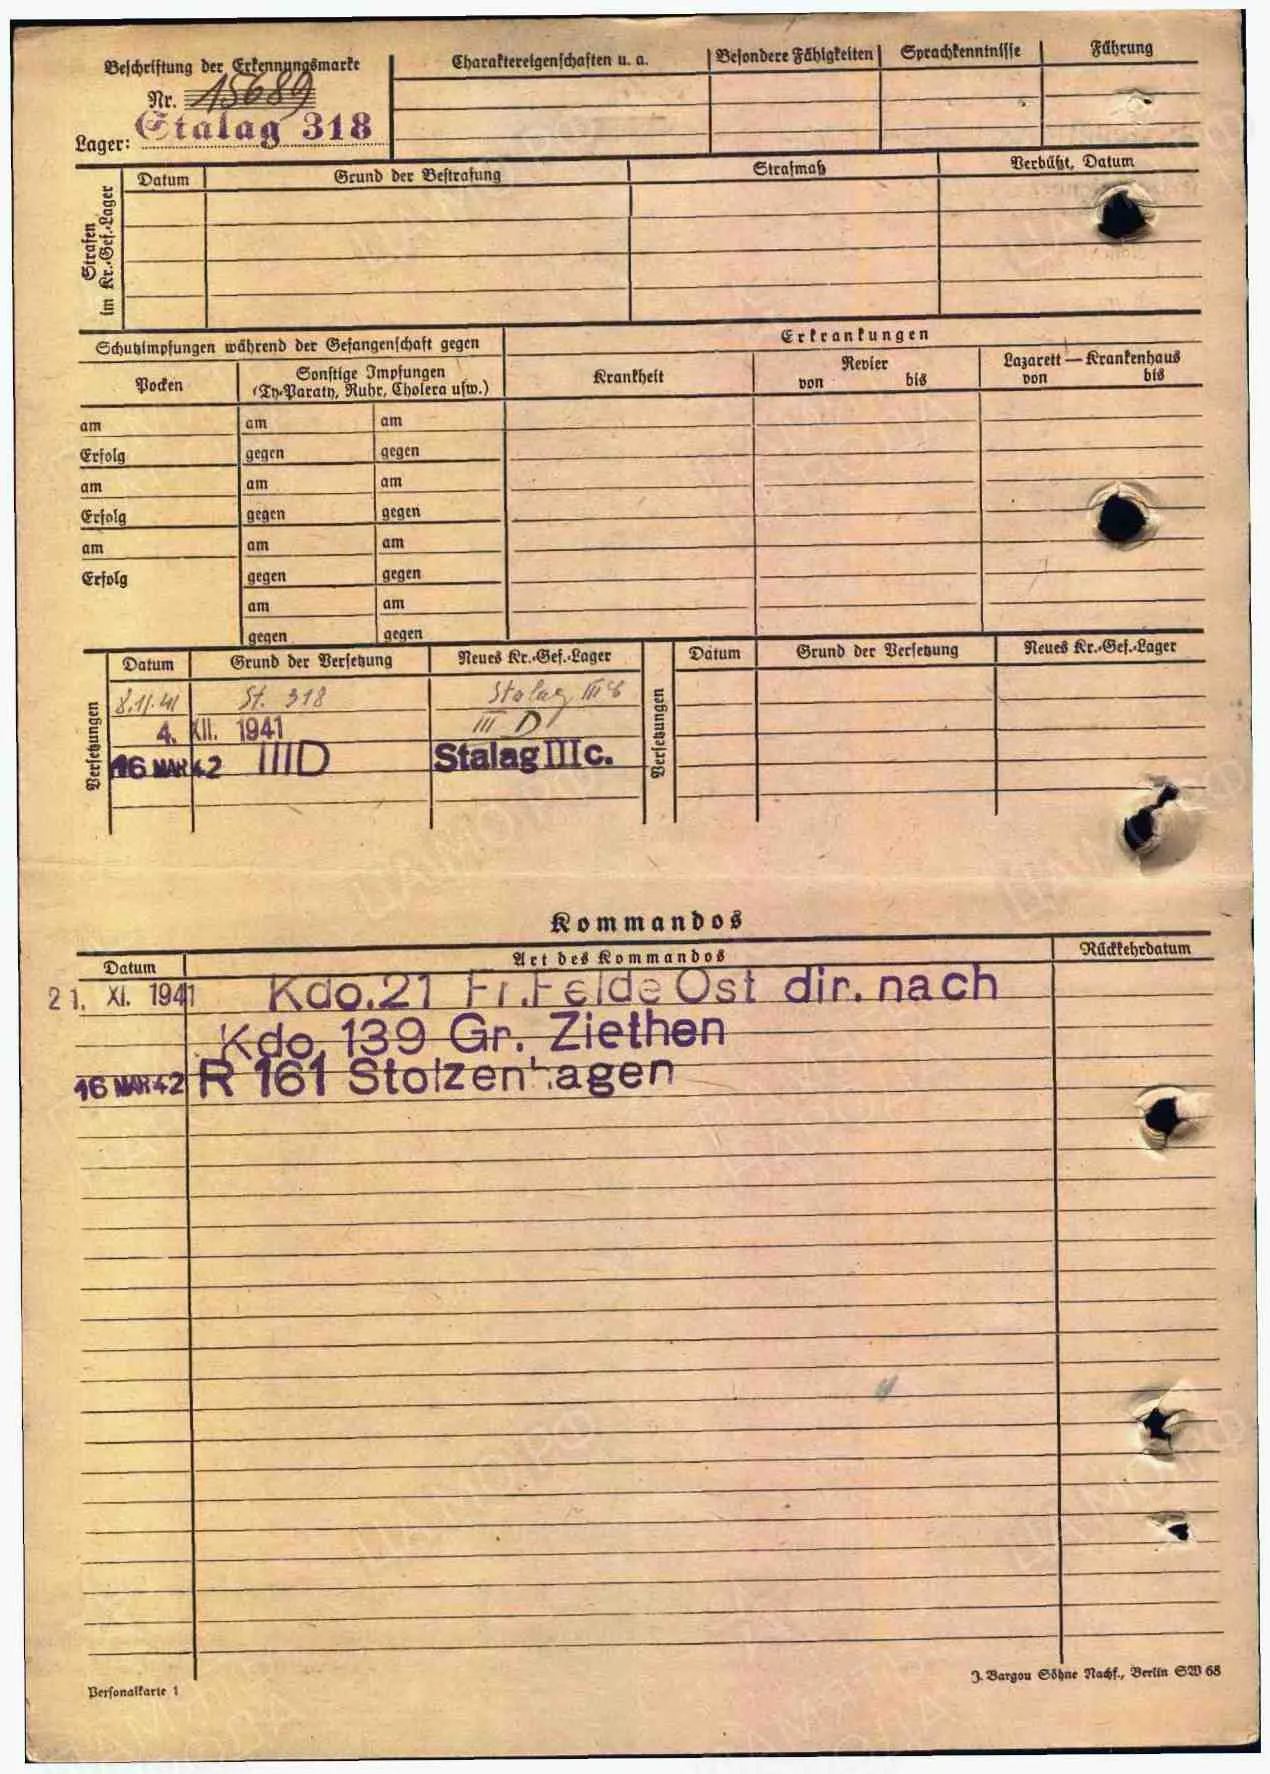 Beschriftung der Erkennungsmarke
Nr. 15689
Lager: Stalag 318
Charaktereigenschaften u. a. Besondere Fähigkeiten Sprachkenntnisse Führung
Strafen im Kr.-Gef.-Lager
Datum Grund der Bestrafung Strafmaß Verbüßt, Datum
Schutzimpfungen während der Gefangenschaft gegen
Erkrankungen
Pocken
Sonstige Impfungen
(Ty-Paraty, Ruhr, Cholera usw.)
Krankheit
Revier
von bis
Lazarett — Krankenhaus
von bis
am am am
Erfolg gegen gegen
am am am
Erfolg gegen gegen
am am am
Erfolg gegen gegen
am am
gegen gegen
Versetzungen
Datum Grund der Versetzung Neues Kr.-Gef.-Lager
8.11.41 St. 318 Stalag III
4. XII. 1941 III D
16 MAR 42 IIID Stalag IIIc.
Versetzungen
Datum Grund der Versetzung Neues Kr.-Gef.-Lager
Kommandos
Datum Art des Kommandos Rückkehrdatum
21. XI. 1941 Kdo.21 Fr.Felde Ost dir. nach
Kdo. 139 Gr. Ziethen
16 MAR 42 R 161 Stolzenhagen
Personalkarte 1
J. Bargou Söhne Nachf., Berlin SW 68
ЦАМО РФ